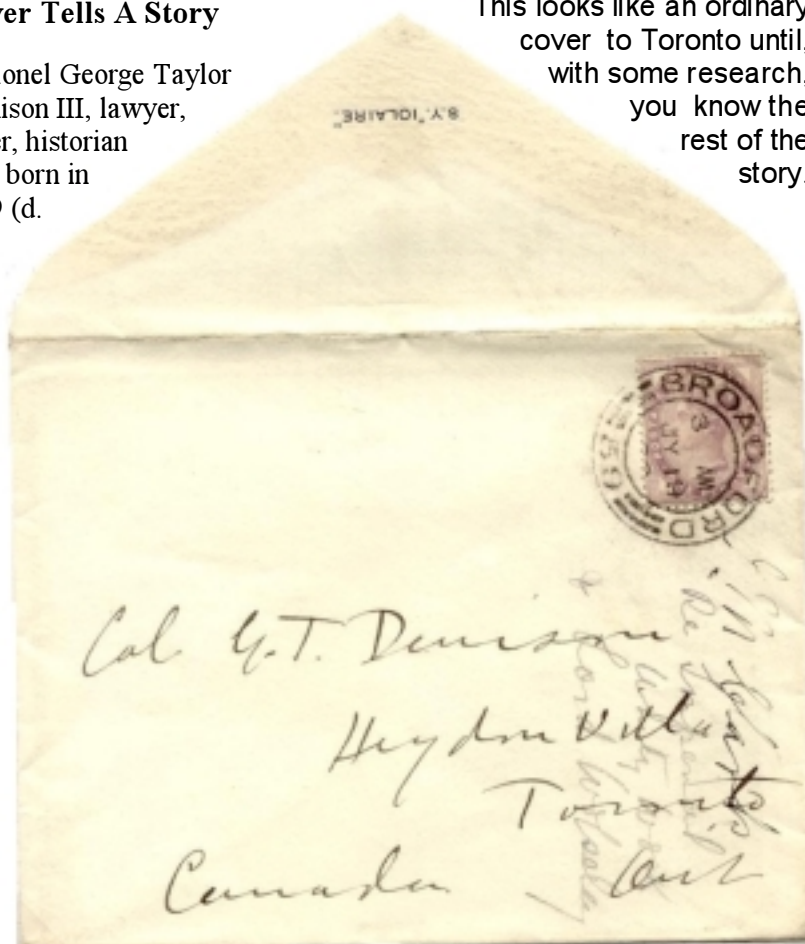 ver Tells A Story
onel George Taylor
ison III, lawyer,
er, historian
born in
9 (d.
This looks like an ordinary
cover to Toronto until,
with some research,
you know the
rest of the
story.
S.Y. "IOLAIRE".
BROADFORD
3 AM
JY 19
Col. G. T. Denison
Heydon Villa
Toronto
Canada Ont